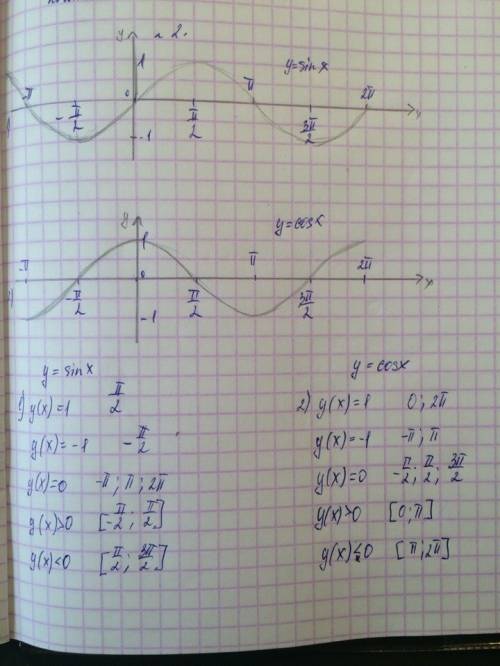 N 2.
y
1
y=sinx
π 0 π 2π
-π/2 π/2 3π/2 x
-1
y
1
y=cosx
π 0 π 2π
-π/2 π/2 3π/2 x
-1
y=sinx
1) y(x)=1 π/2
y(x)=-1 -π/2
y(x)=0 -π; π; 2π
y(x)>0 [-π/2; π/2]
y(x)<0 [π/2; 3π/2]
y=cosx
2) y(x)=1 0; 2π
y(x)=-1 -π; π
y(x)=0 -π/2; π/2; 3π/2
y(x)>0 [0; π]
y(x)<0 [π; 2π]